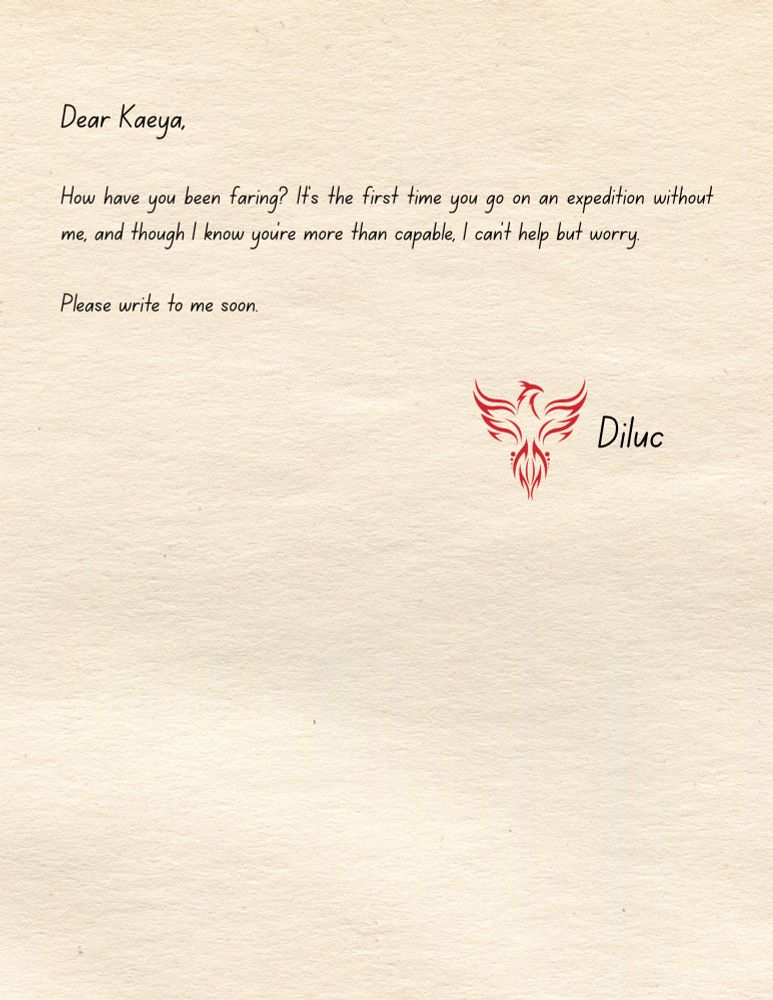 Dear Kaeya,
How have you been faring? It's the first time you go on an expedition without
me, and though I know you're more than capable, I can't help but worry.
Please write to me soon.
Diluc